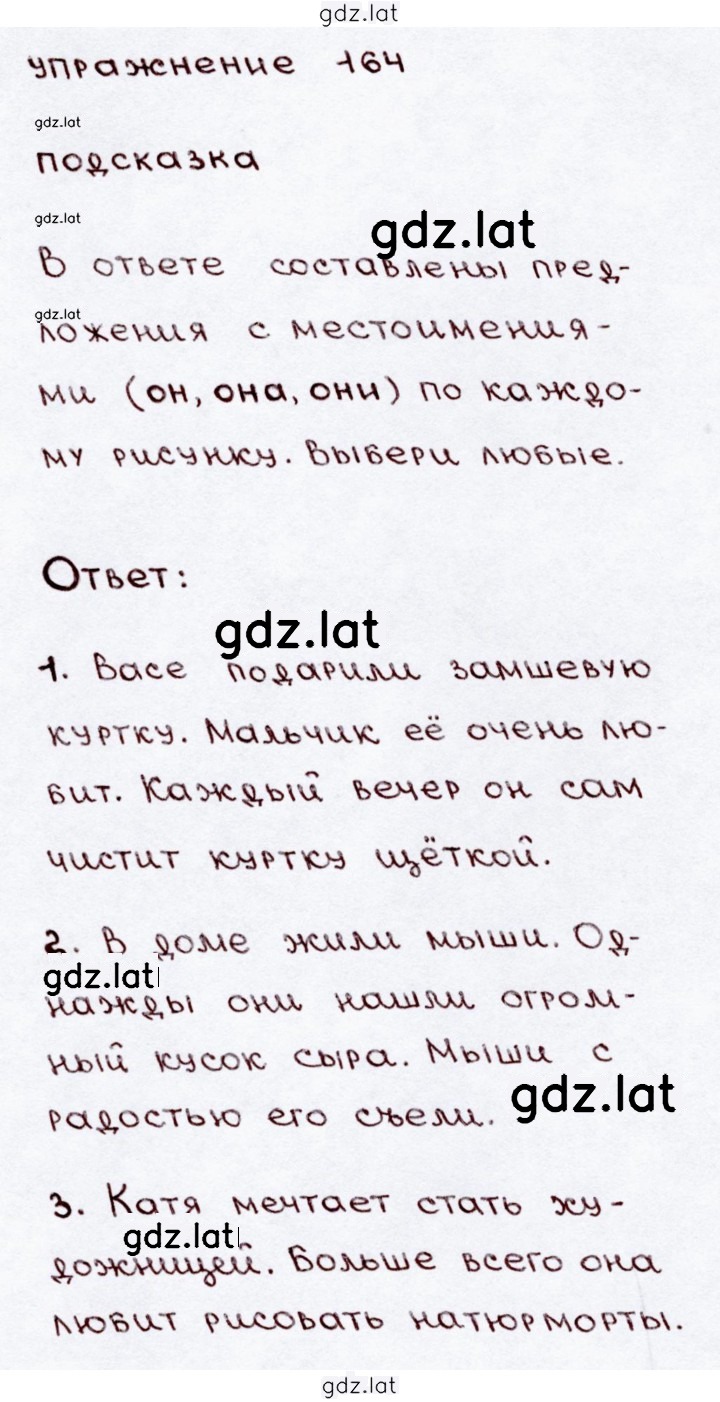 gdz.lat
упражнение 164
gdz.lat
подсказка
gdz.lat
gdz.lat
В ответе составлены пред-
gdz.lat
ложения с местоимения-
ми (он, она, они) по каждо-
му рисунку. Выбери любые.
Ответ:
gdz.lat
1. Васе подарили замшевую
куртку. Мальчик её очень лю-
бит. Каждый вечер он сам
чистит куртку щёткой.
2. В доме жили мыши. Од-
gdz.lat
нажды они нашли огром-
ный кусок сыра. Мыши с
gdz.lat
радостью его съели.
3. Катя мечтает стать ху-
gdz.lat
дожницей. Больше всего она
любит рисовать натюрморты.
gdz.lat